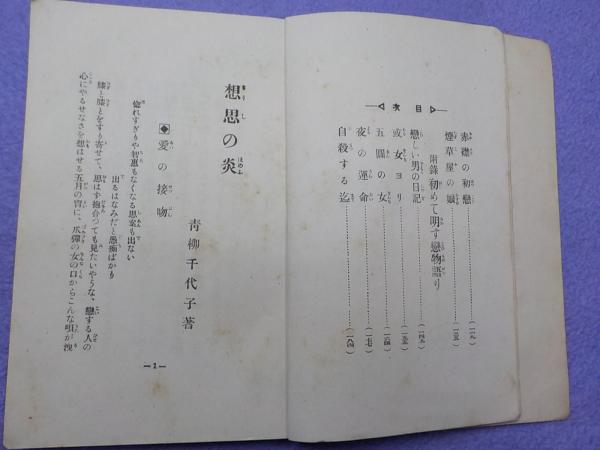 目次
赤襟の初戀………(一一九)
煙草屋の娘………(一三五)
附錄 初めて明す戀物語り
戀しい男の日記………(一四九)
或女ヨリ………(一五三)
五圓の女………(一六四)
夜の運命………(一七一)
自殺する迄………(一八四)
想思の炎
青柳千代子著
◆愛の接吻
惚れすぎりや智惠もなくなる思案も出ない
出るはなみだと愚痴ばかり
膝と膝とをすり寄せて、思はず抱合つても見たいやうな、戀する人の
心にやるせなさを想はせる五月の宵に、爪彈の女の口からこんな唄が洩
—1—